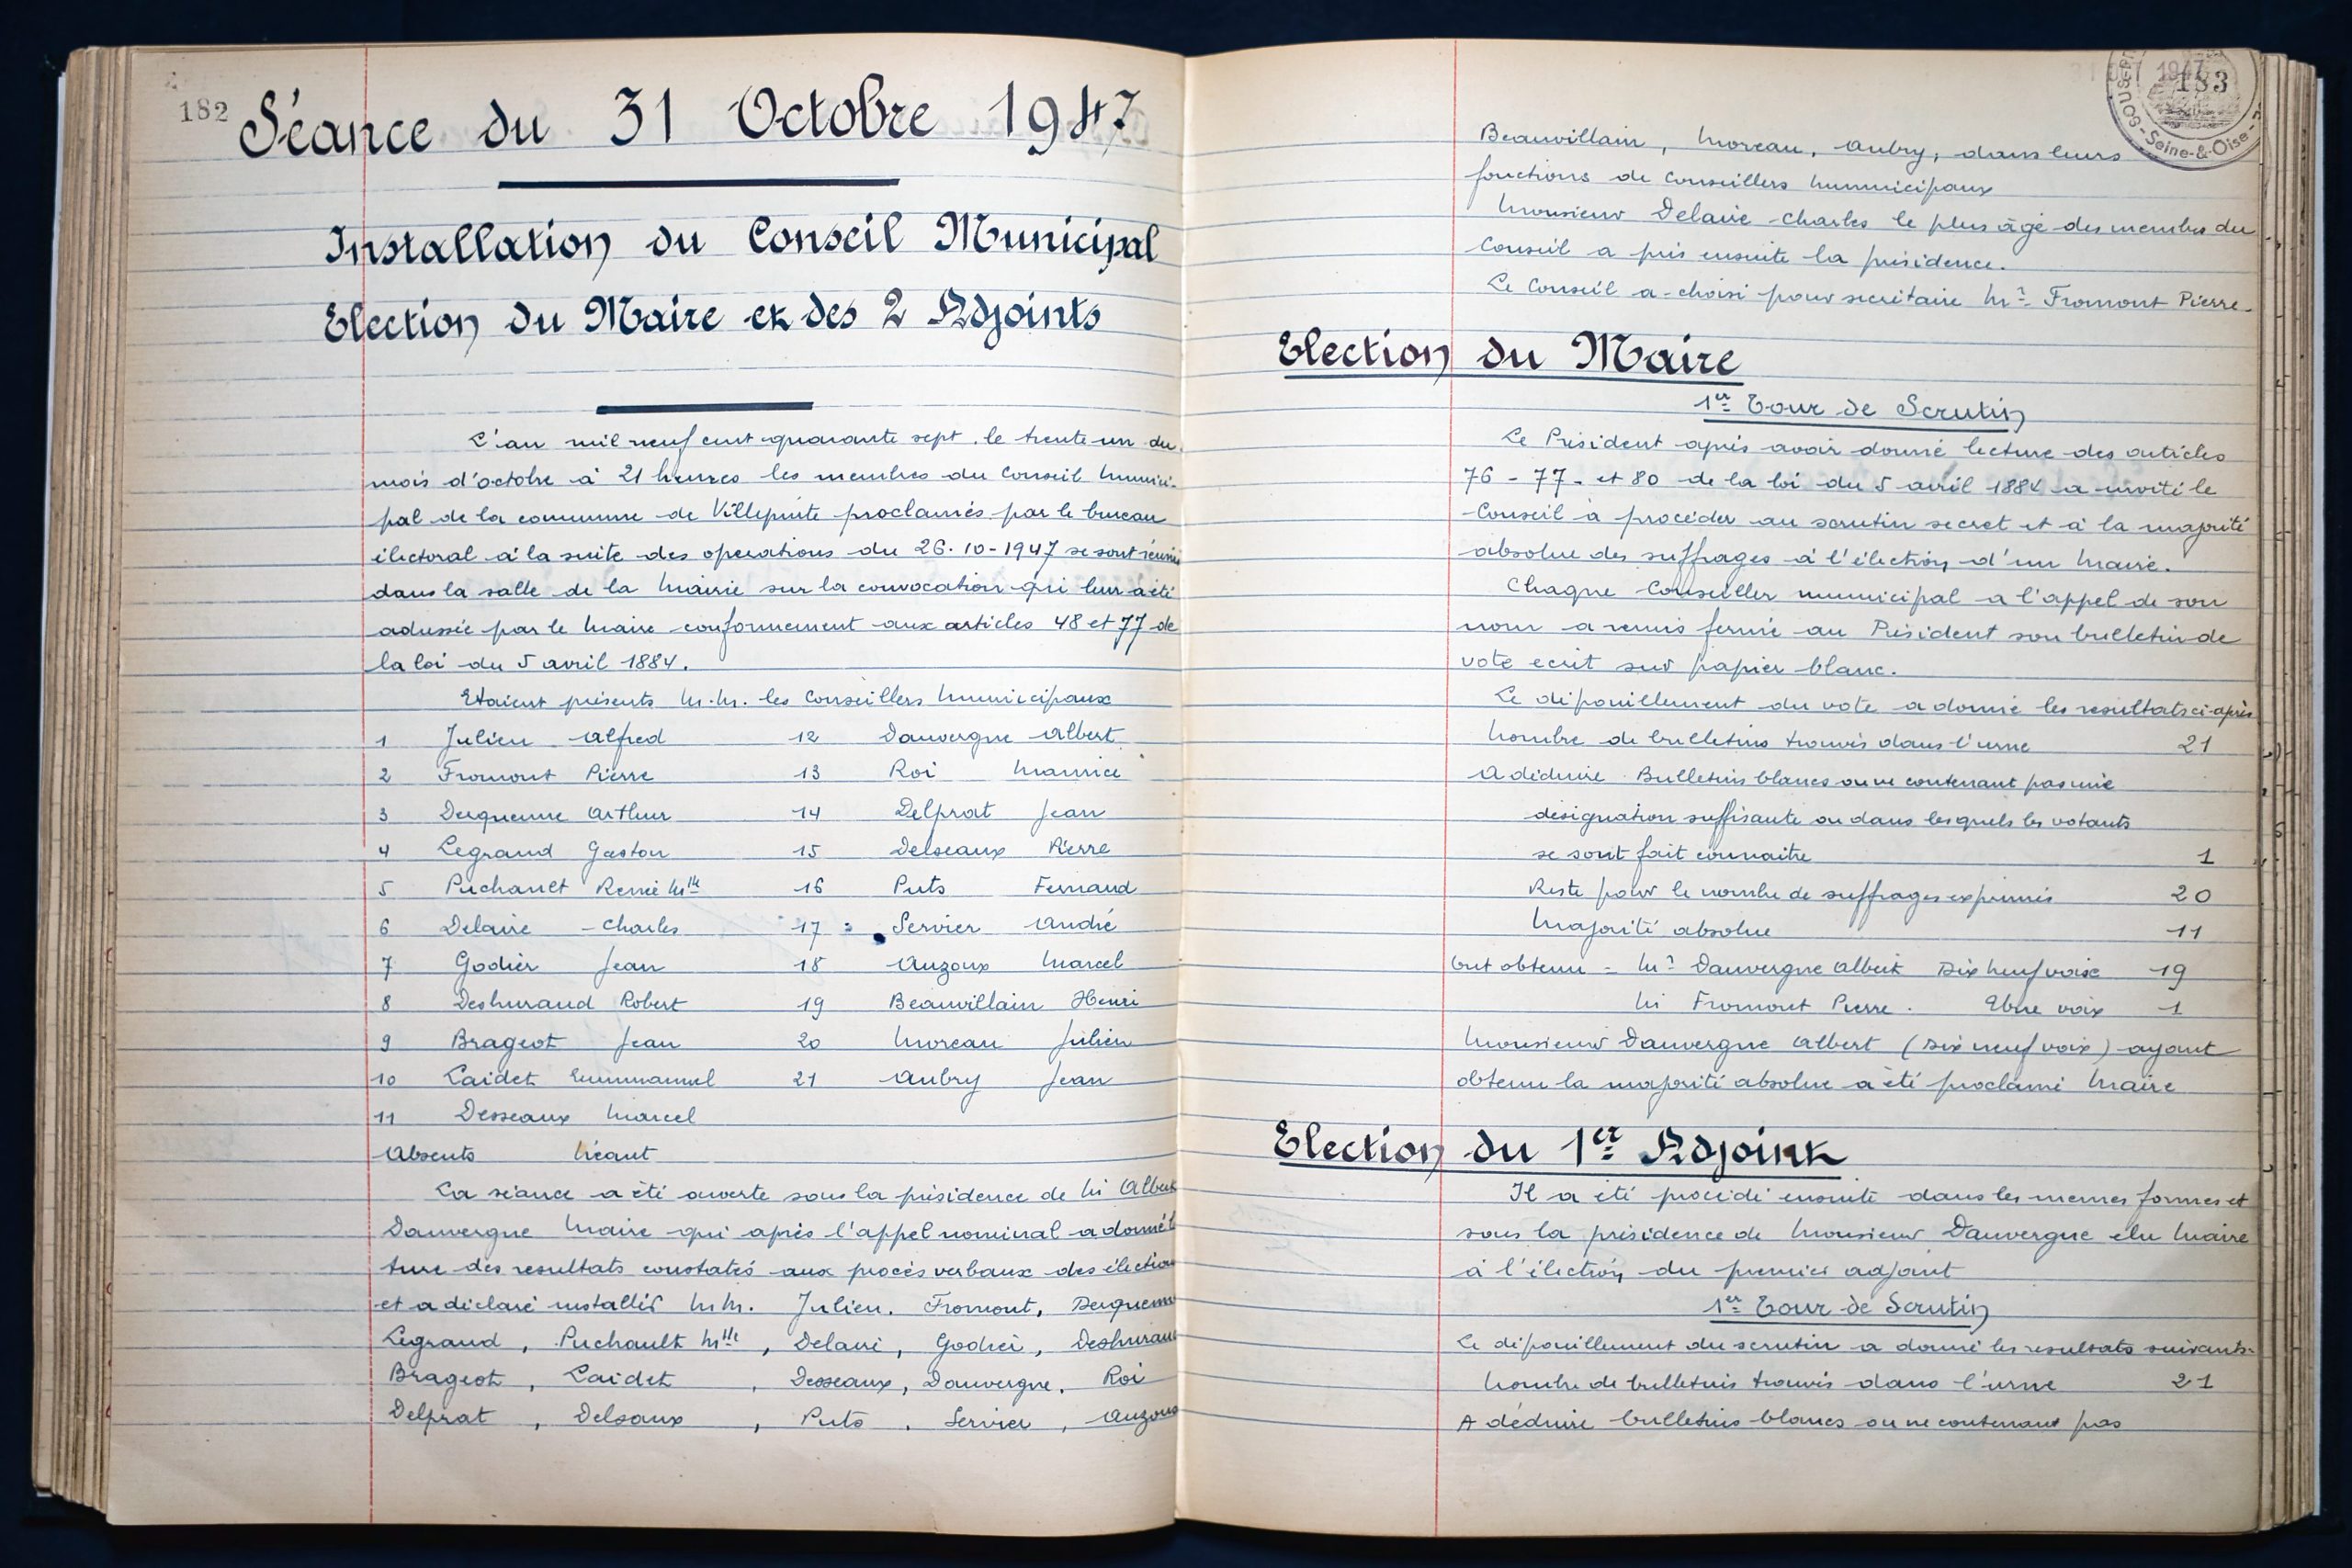 182
Séance du 31 Octobre 1947
Installation du Conseil Municipal
Election du Maire et des 2 Adjoints
L'an mil neuf cent quarante sept, le trente un du
mois d'octobre à 21 heures les membres du Conseil Munici-
pal de la commune de Villepinte proclamés par le bureau
électoral à la suite des operations du 26-10-1947 se sont réunis
dans la salle de la Mairie sur la convocation qui leur a été
adressée par le Maire conformement aux articles 48 et 77 de
la loi du 5 avril 1884.
Etaient présents M.M. les Conseillers Municipaux
1 Julien Alfred 12 Dauvergne Albert
2 Fromont Pierre 13 Roi Maurice
3 Duquenne Arthur 14 Delprat Jean
4 Legrand Gaston 15 Delseaux Pierre
5 Puchault Renée Mlle 16 Puts Fernand
6 Delaire Charles 17 Servier André
7 Godier Jean 18 Auzoux Marcel
8 Deshuraud Robert 19 Beauvillain Henri
9 Brageot Jean 20 Moreau Julien
10 Laidet Emmanuel 21 Aubry Jean
11 Desseaux Marcel
Absents Néant
La séance a été ouverte sous la présidence de M Albert
Dauvergne Maire qui après l'appel nominal a donné
ture des resultats constatés aux procès verbaux des élection
et a déclaré installés M.M. Julien, Fromont, Duquenne
Legrand, Puchault Mlle, Delaire, Godier, Deshurau
Brageot, Laidet, Desseaux, Dauvergne, Roi
Delprat, Delsaux, Puts, Servier, Auzoux
183
Seine-&-Oise
Beauvillain, Moreau, Aubry, dans leurs
fonctions de Conseillers Municipaux
Monsieur Delaire Charles le plus âgé des membres du
Conseil a pris ensuite la présidence.
Le Conseil a choisi pour secrétaire Mr Fromont Pierre.
Election du Maire
1er Tour de Scrutin
Le Président après avoir donné lecture des articles
76 - 77 - et 80 de la loi du 5 avril 1884 a invité le
Conseil à procéder au scrutin secret et à la majorité
absolue des suffrages à l'élection d'un Maire.
Chaque Conseiller municipal a l'appel de son
nom a remis fermé au Président son bulletin de
vote ecrit sur papier blanc.
Le dépouillement du vote a donné les resultats ci-après
Nombre de bulletins trouvés dans l'urne 21
A déduire Bulletins blancs ou ne contenant pas une
désignation suffisante ou dans lesquels les votants
se sont fait connaitre 1
Reste pour le nombre de suffrages exprimés 20
Majorité absolue 11
Ont obtenu = Mr Dauvergne Albert Dix neuf voix 19
M Fromont Pierre. Une voix 1
Monsieur Dauvergne Albert (Dix neuf voix) ayant
obtenu la majorité absolue a été proclamé Maire
Election du 1er Adjoint
Il a été procédé ensuite dans les memes formes et
sous la présidence de Monsieur Dauvergne élu Maire
à l'élection du premier adjoint
1er Tour de Scrutin
Le dépouillement du scrutin a donné les resultats suivants-
Nombre de bulletins trouvés dans l'urne 21
A déduire bulletins blancs ou ne contenant pas